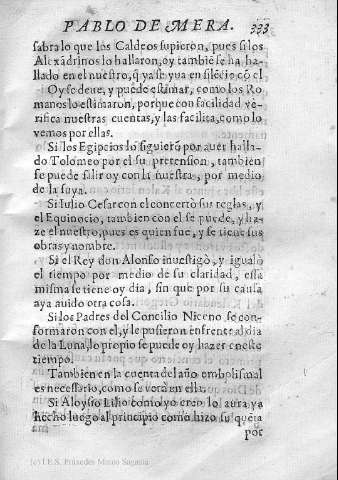 PABLO DE MERA. 333
sabra lo que los Caldeos supieron, pues si los
Alexãdrinos lo hallaron, oy tambiẽ se ha ha-
llado en el nuestro, q̃ ya se vua en silẽcio cõ el
Oy se deue, y puede estimar, como los Ro
manos lo estimaron, porque con facilidad ve-
rifica nuestras cuentas, y las facilita, como lo
vemos por ellas.
Si los Egipcios lo siguierõ por auer halla-
do Tolomeo por el su pretension, tambien
se puede salir oy con la nuestra, por medio
de la suya.
Si Iulio Cesar con el concertò sus reglas, y
el Equinocio, tambien con el se puede, y ha-
ze el nuestro, pues es quien fue, y se tiene sus
obras y nombre.
Si el Rey don Alonso inuestigò, y igualò
el tiempo por medio de su claridad, essa
misma se tiene oy dia, sin que por su causa
aya auido otra cosa.
Si los Padres del Concilio Niceno se con-
formaron con el, y le pusieron enfrente al dia
de la Luna, lo propio se puede oy hazer eneste
tiempo.
Tambien en la cuenta del año embolismal
es necessario, como se verà en ella.
Si Aloysio Lilio como yo creo lo aura ya
hecho luego al principio como hizo su
por
(c) I.E.S. Práxedes Mateo Sagasta